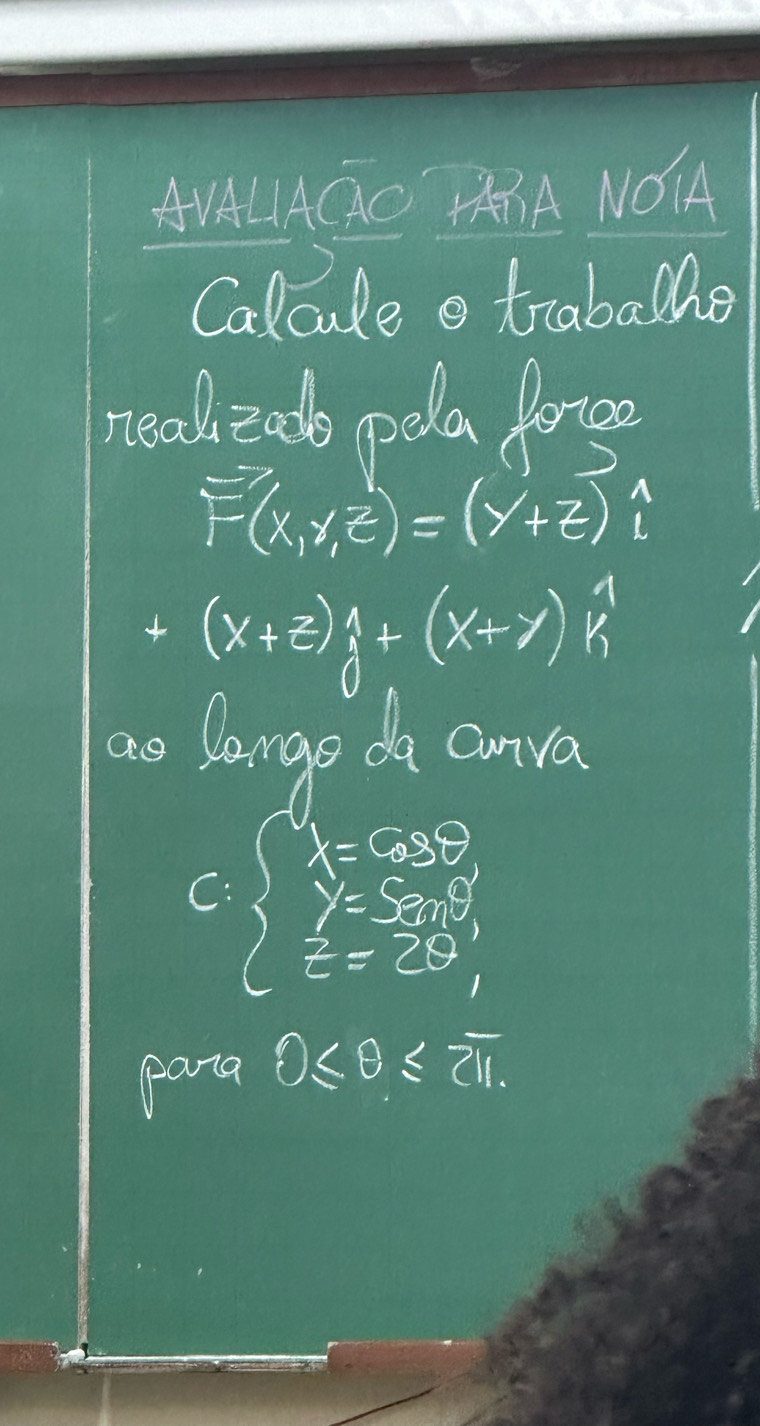 AVALIAÇÃO PARA NOTA
Calcule o trabalho
realizado pela força
F⃗(x,y,z) = (y+z) î
+ (x+z) ĵ + (x+y) k̂
ao longo da curva
C: { x = cosθ,
y = senθ,
z = 2θ,
para 0 ≤ θ ≤ 2π.